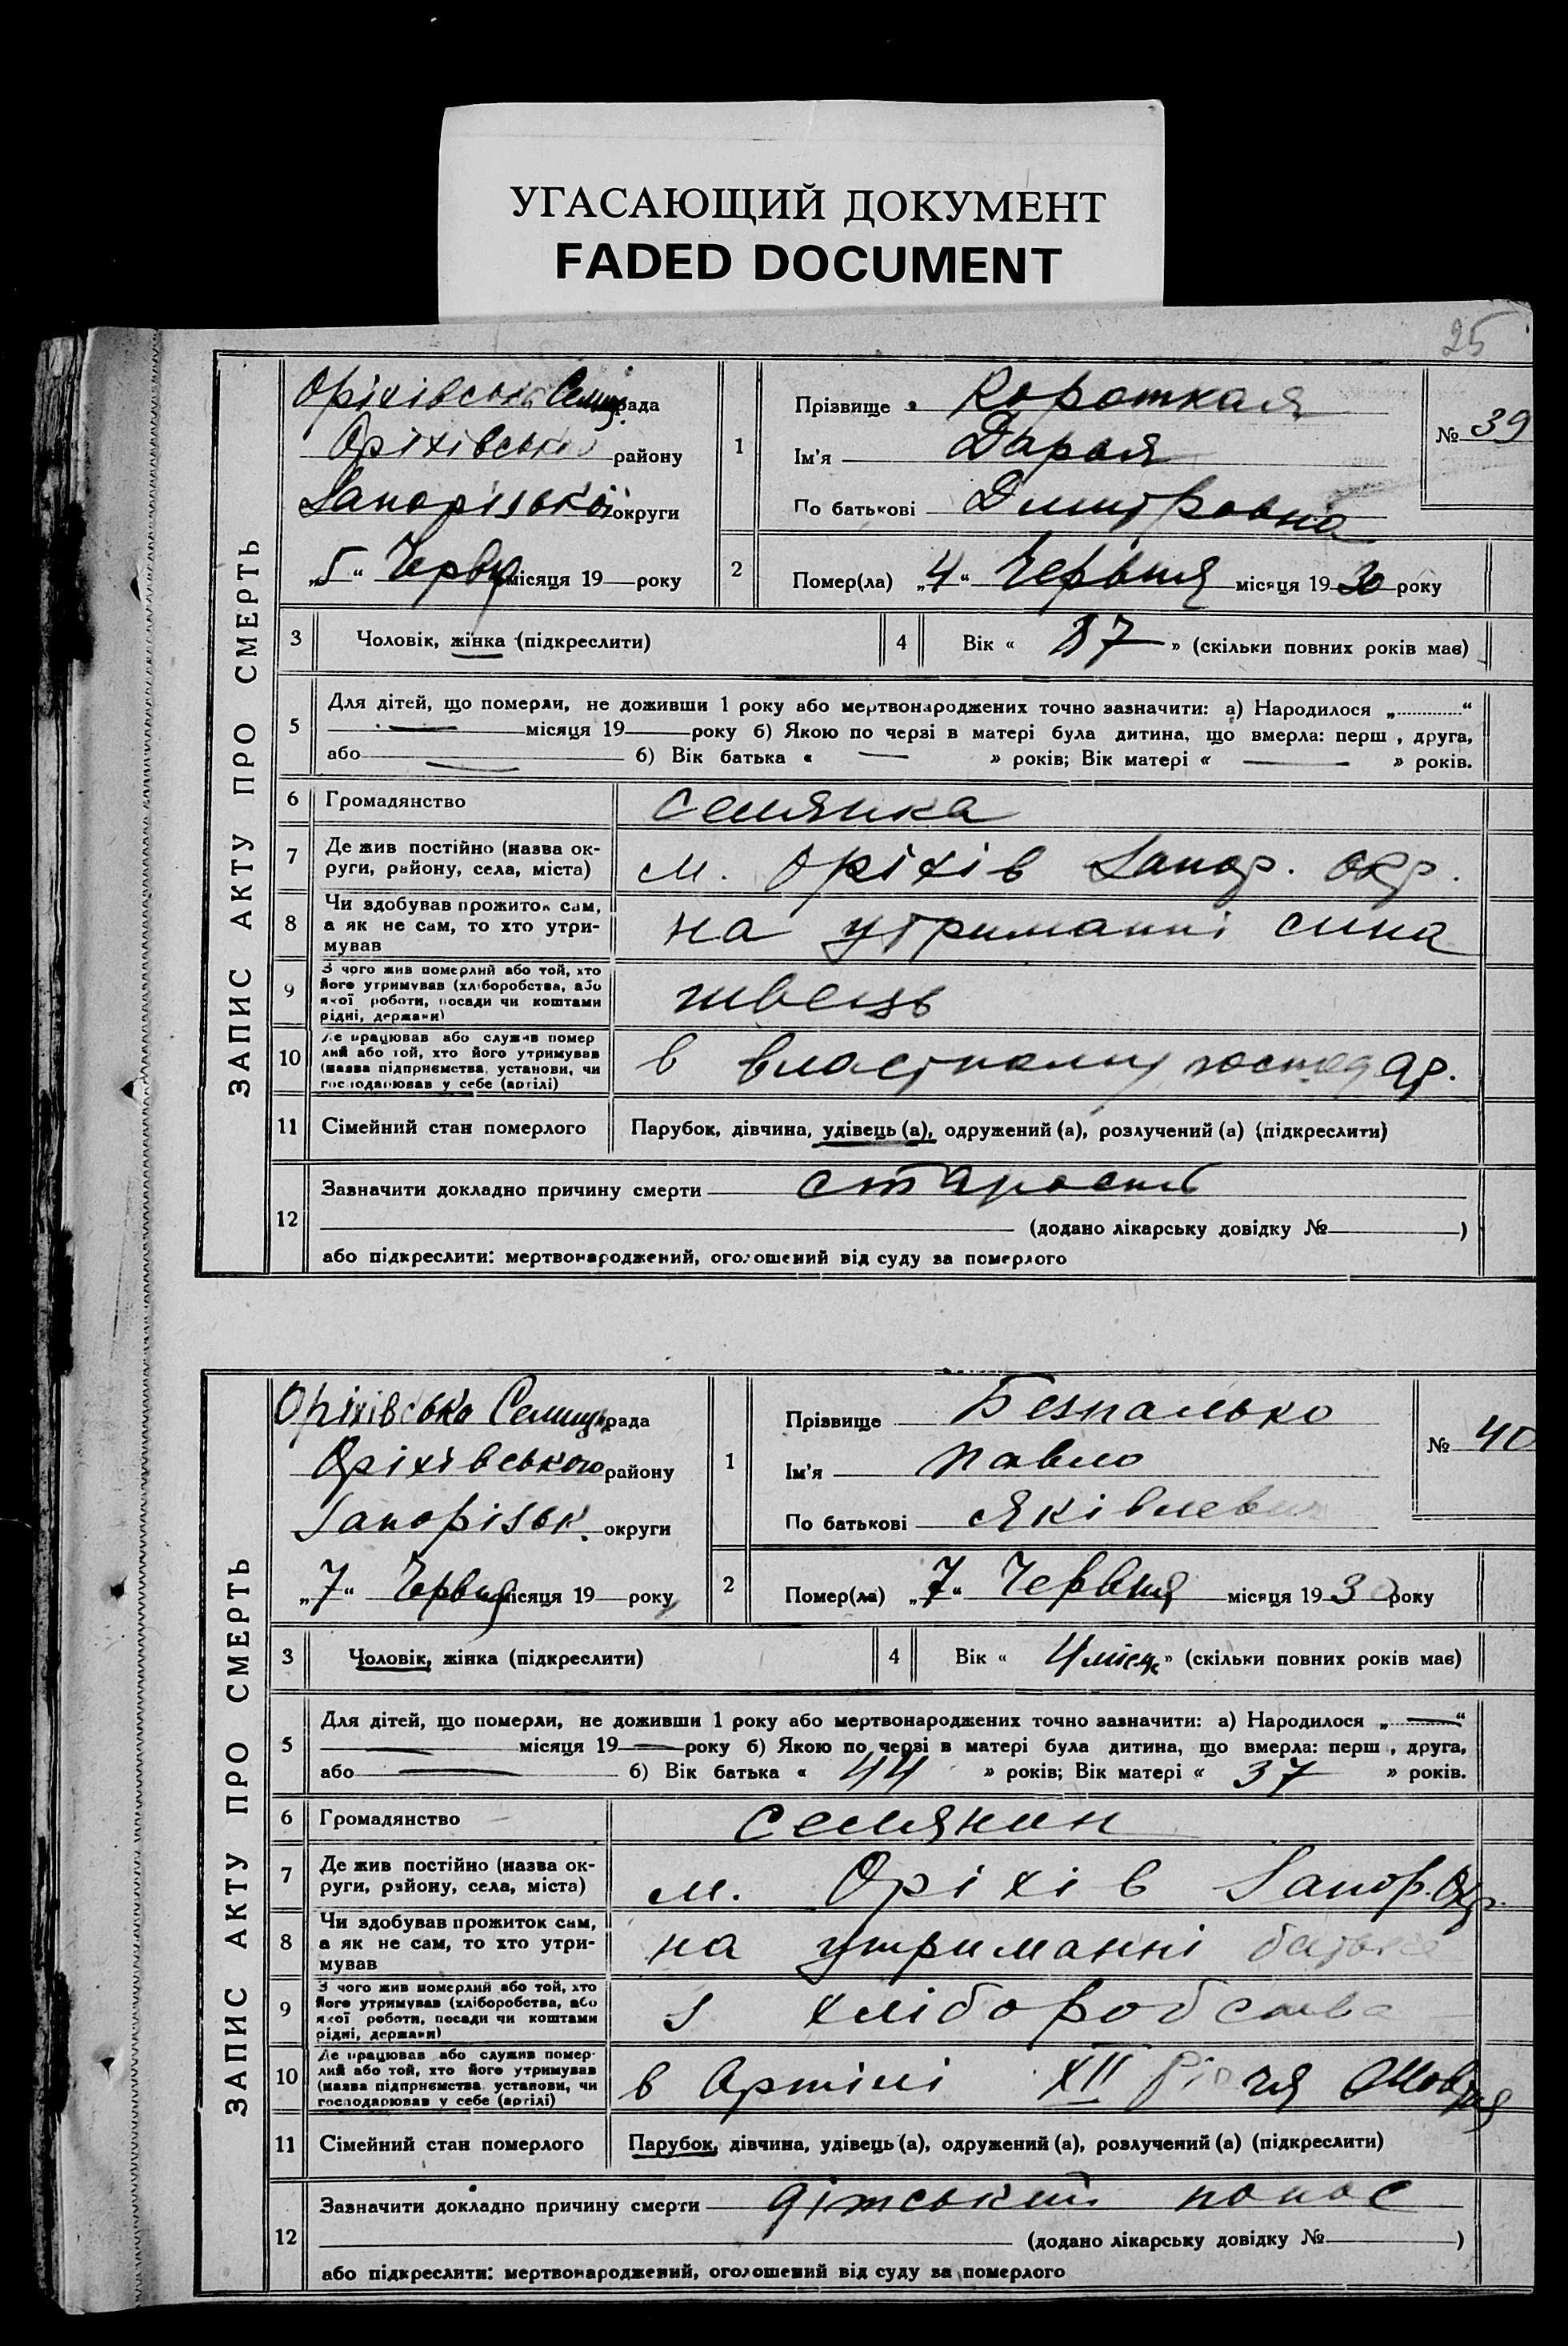 УГАСАЮЩИЙ ДОКУМЕНТ
FADED DOCUMENT
25
ЗАПИС АКТУ ПРО СМЕРТЬ
Оріхівська Селищ. рада
Оріхівської району
Запорізької округи
„5“ Червня місяця 19 року
1
Прізвище Короткая
Ім'я Дарья
По батькові Дмитровна
№ 39
2
Помер(ла) „4“ Червня місяця 1930 року
3
Чоловік, жінка (підкреслити)
4
Вік « 87 » (скільки повних років має)
5
Для дітей, що померли, не доживши 1 року або мертвонароджених точно зазначити: а) Народилося „ “
місяця 19 року б) Якою по черзі в матері була дитина, що вмерла: перш , друга,
або б) Вік батька « » років; Вік матері « » років.
6
Громадянство
селянка
7
Де жив постійно (назва ок-
руги, району, села, міста)
м. Оріхів Запор. окр.
8
Чи здобував прожиток сам,
а як не сам, то хто утри-
мував
на утриманні сина
9
З чого жив померлий або той, хто
його утримував (хліборобства, або
якої роботи, посади чи коштами
рідні, держави)
швець
10
Де працював або служив помер
лий або той, хто його утримував
(назва підприємства, установи, чи
господарював у себе (артілі)
в власному господар.
11
Сімейний стан померлого
Парубок, дівчина, удівець (а), одружений (а), розлучений (а) (підкреслити)
12
Зазначити докладно причину смерти старость
(додано лікарську довідку № )
або підкреслити: мертвонароджений, оголошений від суду за померлого
ЗАПИС АКТУ ПРО СМЕРТЬ
Оріхівська Селищ. рада
Оріхівського району
Запорізьк. округи
„7“ Червня місяця 19 року
1
Прізвище Безпалько
Ім'я Павло
По батькові Яківлевич
№ 40
2
Помер(ла) „7“ Червня місяця 1930 року
3
Чоловік, жінка (підкреслити)
4
Вік « 4 місяц » (скільки повних років має)
5
Для дітей, що померли, не доживши 1 року або мертвонароджених точно зазначити: а) Народилося „ “
місяця 19 року б) Якою по черзі в матері була дитина, що вмерла: перш , друга,
або б) Вік батька « 44 » років; Вік матері « 37 » років.
6
Громадянство
селянин
7
Де жив постійно (назва ок-
руги, району, села, міста)
м. Оріхів Запор. Окр.
8
Чи здобував прожиток сам,
а як не сам, то хто утри-
мував
на утриманні батька
9
З чого жив померлий або той, хто
його утримував (хліборобства, або
якої роботи, посади чи коштами
рідні, держави)
з хліборобства
10
Де працював або служив помер-
лий або той, хто його утримував
(назва підприємства, установи, чи
господарював у себе (артілі)
в Артілі XII річчя Жовтня
11
Сімейний стан померлого
Парубок, дівчина, удівець (а), одружений (а), розлучений (а) (підкреслити)
12
Зазначити докладно причину смерти дітський понос
(додано лікарську довідку № )
або підкреслити: мертвонароджений, оголошений від суду за померлого